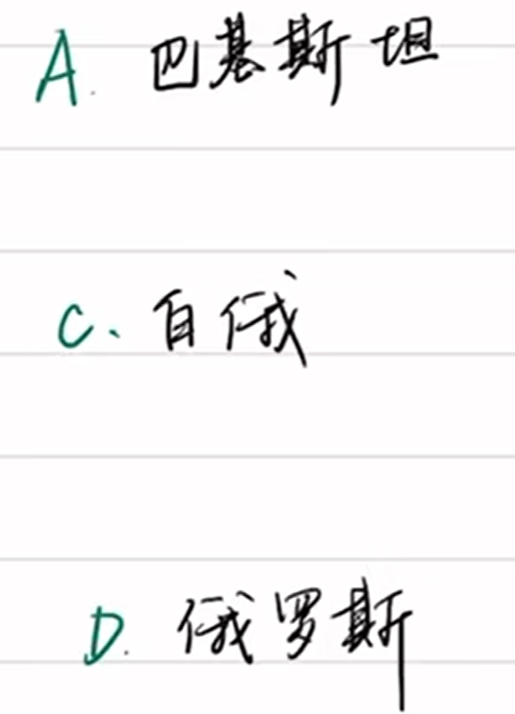 A. 巴基斯坦
C. 白俄
D. 俄罗斯